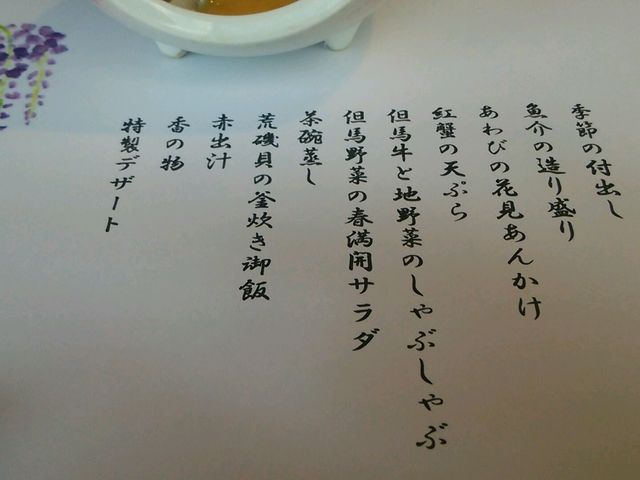 季節の付出し
魚介の造り盛り
あわびの花見あんかけ
紅蟹の天ぷら
但馬牛と地野菜のしゃぶしゃぶ
但馬野菜の春満開サラダ
茶碗蒸し
荒磯貝の釜炊き御飯
赤出汁
香の物
特製デザート